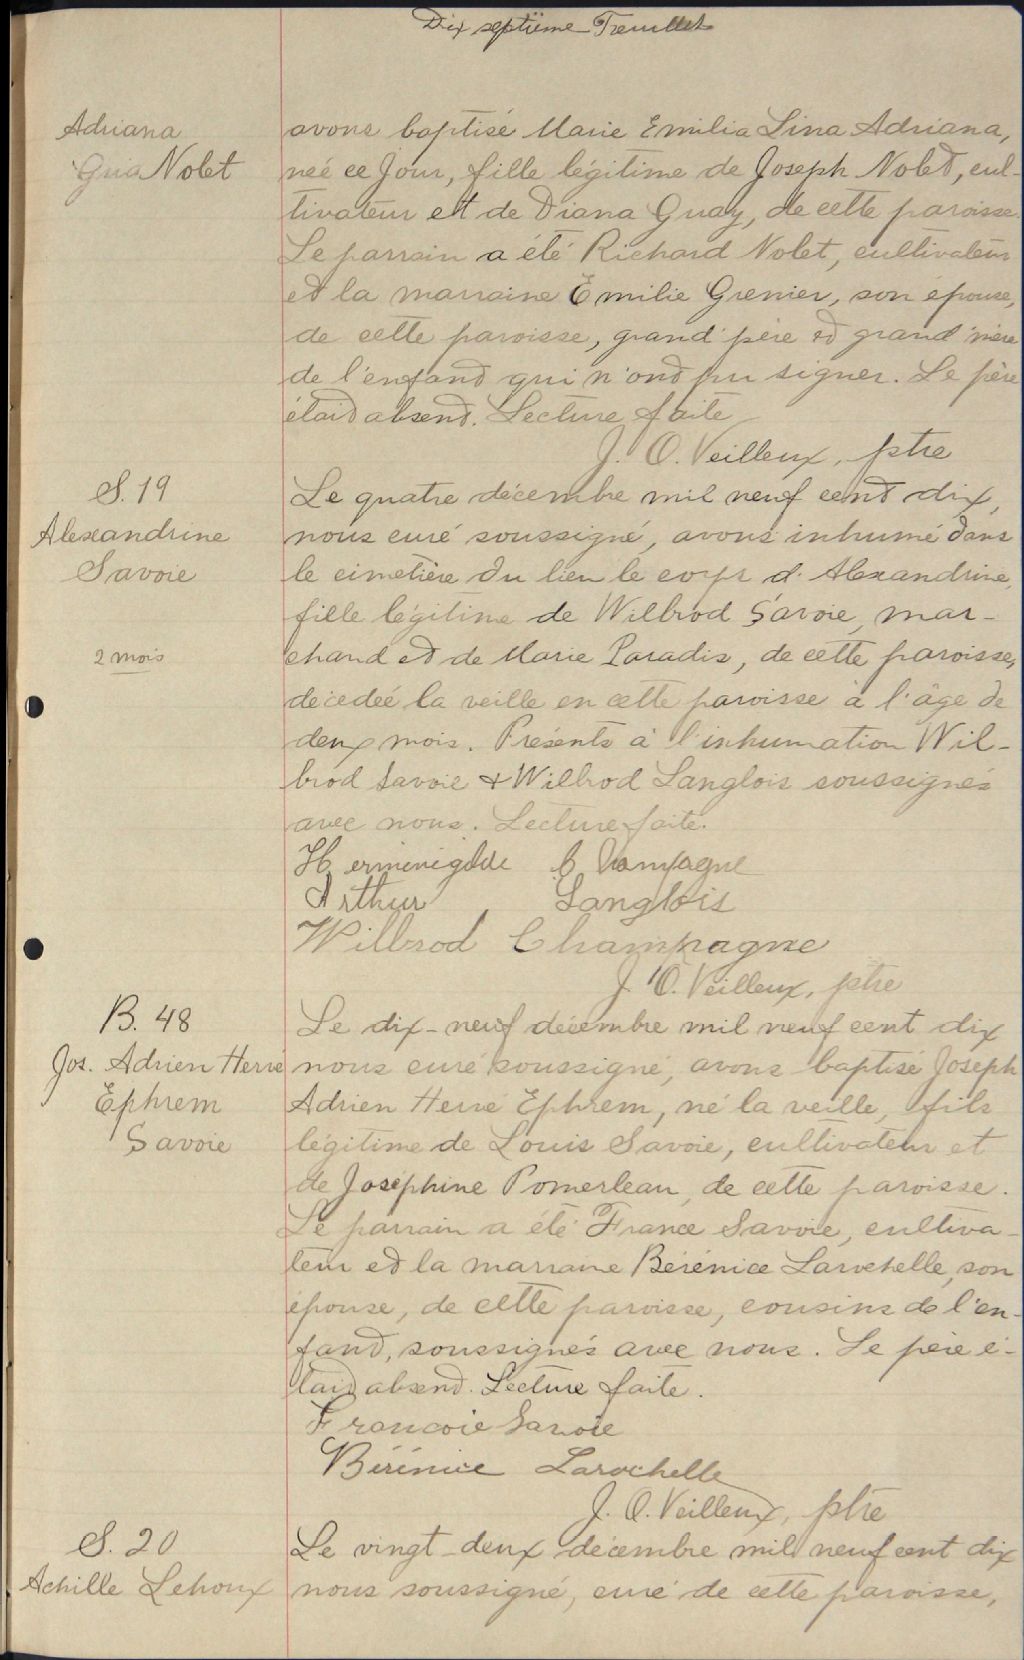 Dix septième Feuillet
Adriana
Nolet
avons baptisé Marie Emilia Lina Adriana,
neé ce Jour, fille légitime de Joseph Nolet, cul-
tivateur et de Diana Guay, de cette paroisse.
Le parrain a été Richard Nolet, cultivateur
et la marraine Emilie Grenier, son épouse,
de cette paroisse, grand'père et grand'mère
de l'enfant qui n'ont pu signer. Le père
était absent. Lecture faite
J. O. Veilleux, ptre
S. 19
Alexandrine
Savoie
2 mois
Le quatre décembre mil neuf cent dix,
nous curé soussigné, avons inhumé dans
le cimetière du lieu le corps d'Alexandrine,
fille légitime de Wilbrod Savoie, mar-
chand et de Marie Paradis, de cette paroisse,
décedeé la veille en cette paroisse à l'âge de
deux mois. Présents à l'inhumation Wil-
brod Savoie & Wilbrod Langlois soussignés
avec nous. Lecture faite.
Herménégilde Champagne
Arthur Langlois
Wilbrod Champagne
J. O. Veilleux, ptre
B. 48
Jos. Adrien Hervé
Ephrem
Savoie
Le dix-neuf décembre mil neuf cent dix
nous curé soussigné, avons baptisé Joseph
Adrien Hervé Ephrem, né la veille, fils
légitime de Louis Savoie, cultivateur et
de Joséphine Pomerleau, de cette paroisse.
Le parrain a été France Savoie, cultiva-
teur et la marraine Bérénice Larochelle, son
épouse, de cette paroisse, cousins de l'en-
fant, soussignés avec nous. Le père é-
tait absent. Lecture faite.
Francoie Savoie
Bérénice Larochelle
J. O. Veilleux, ptre
S. 20
Achille Lehoux
Le vingt-deux décembre mil neuf cent dix
nous soussigné, curé de cette paroisse,